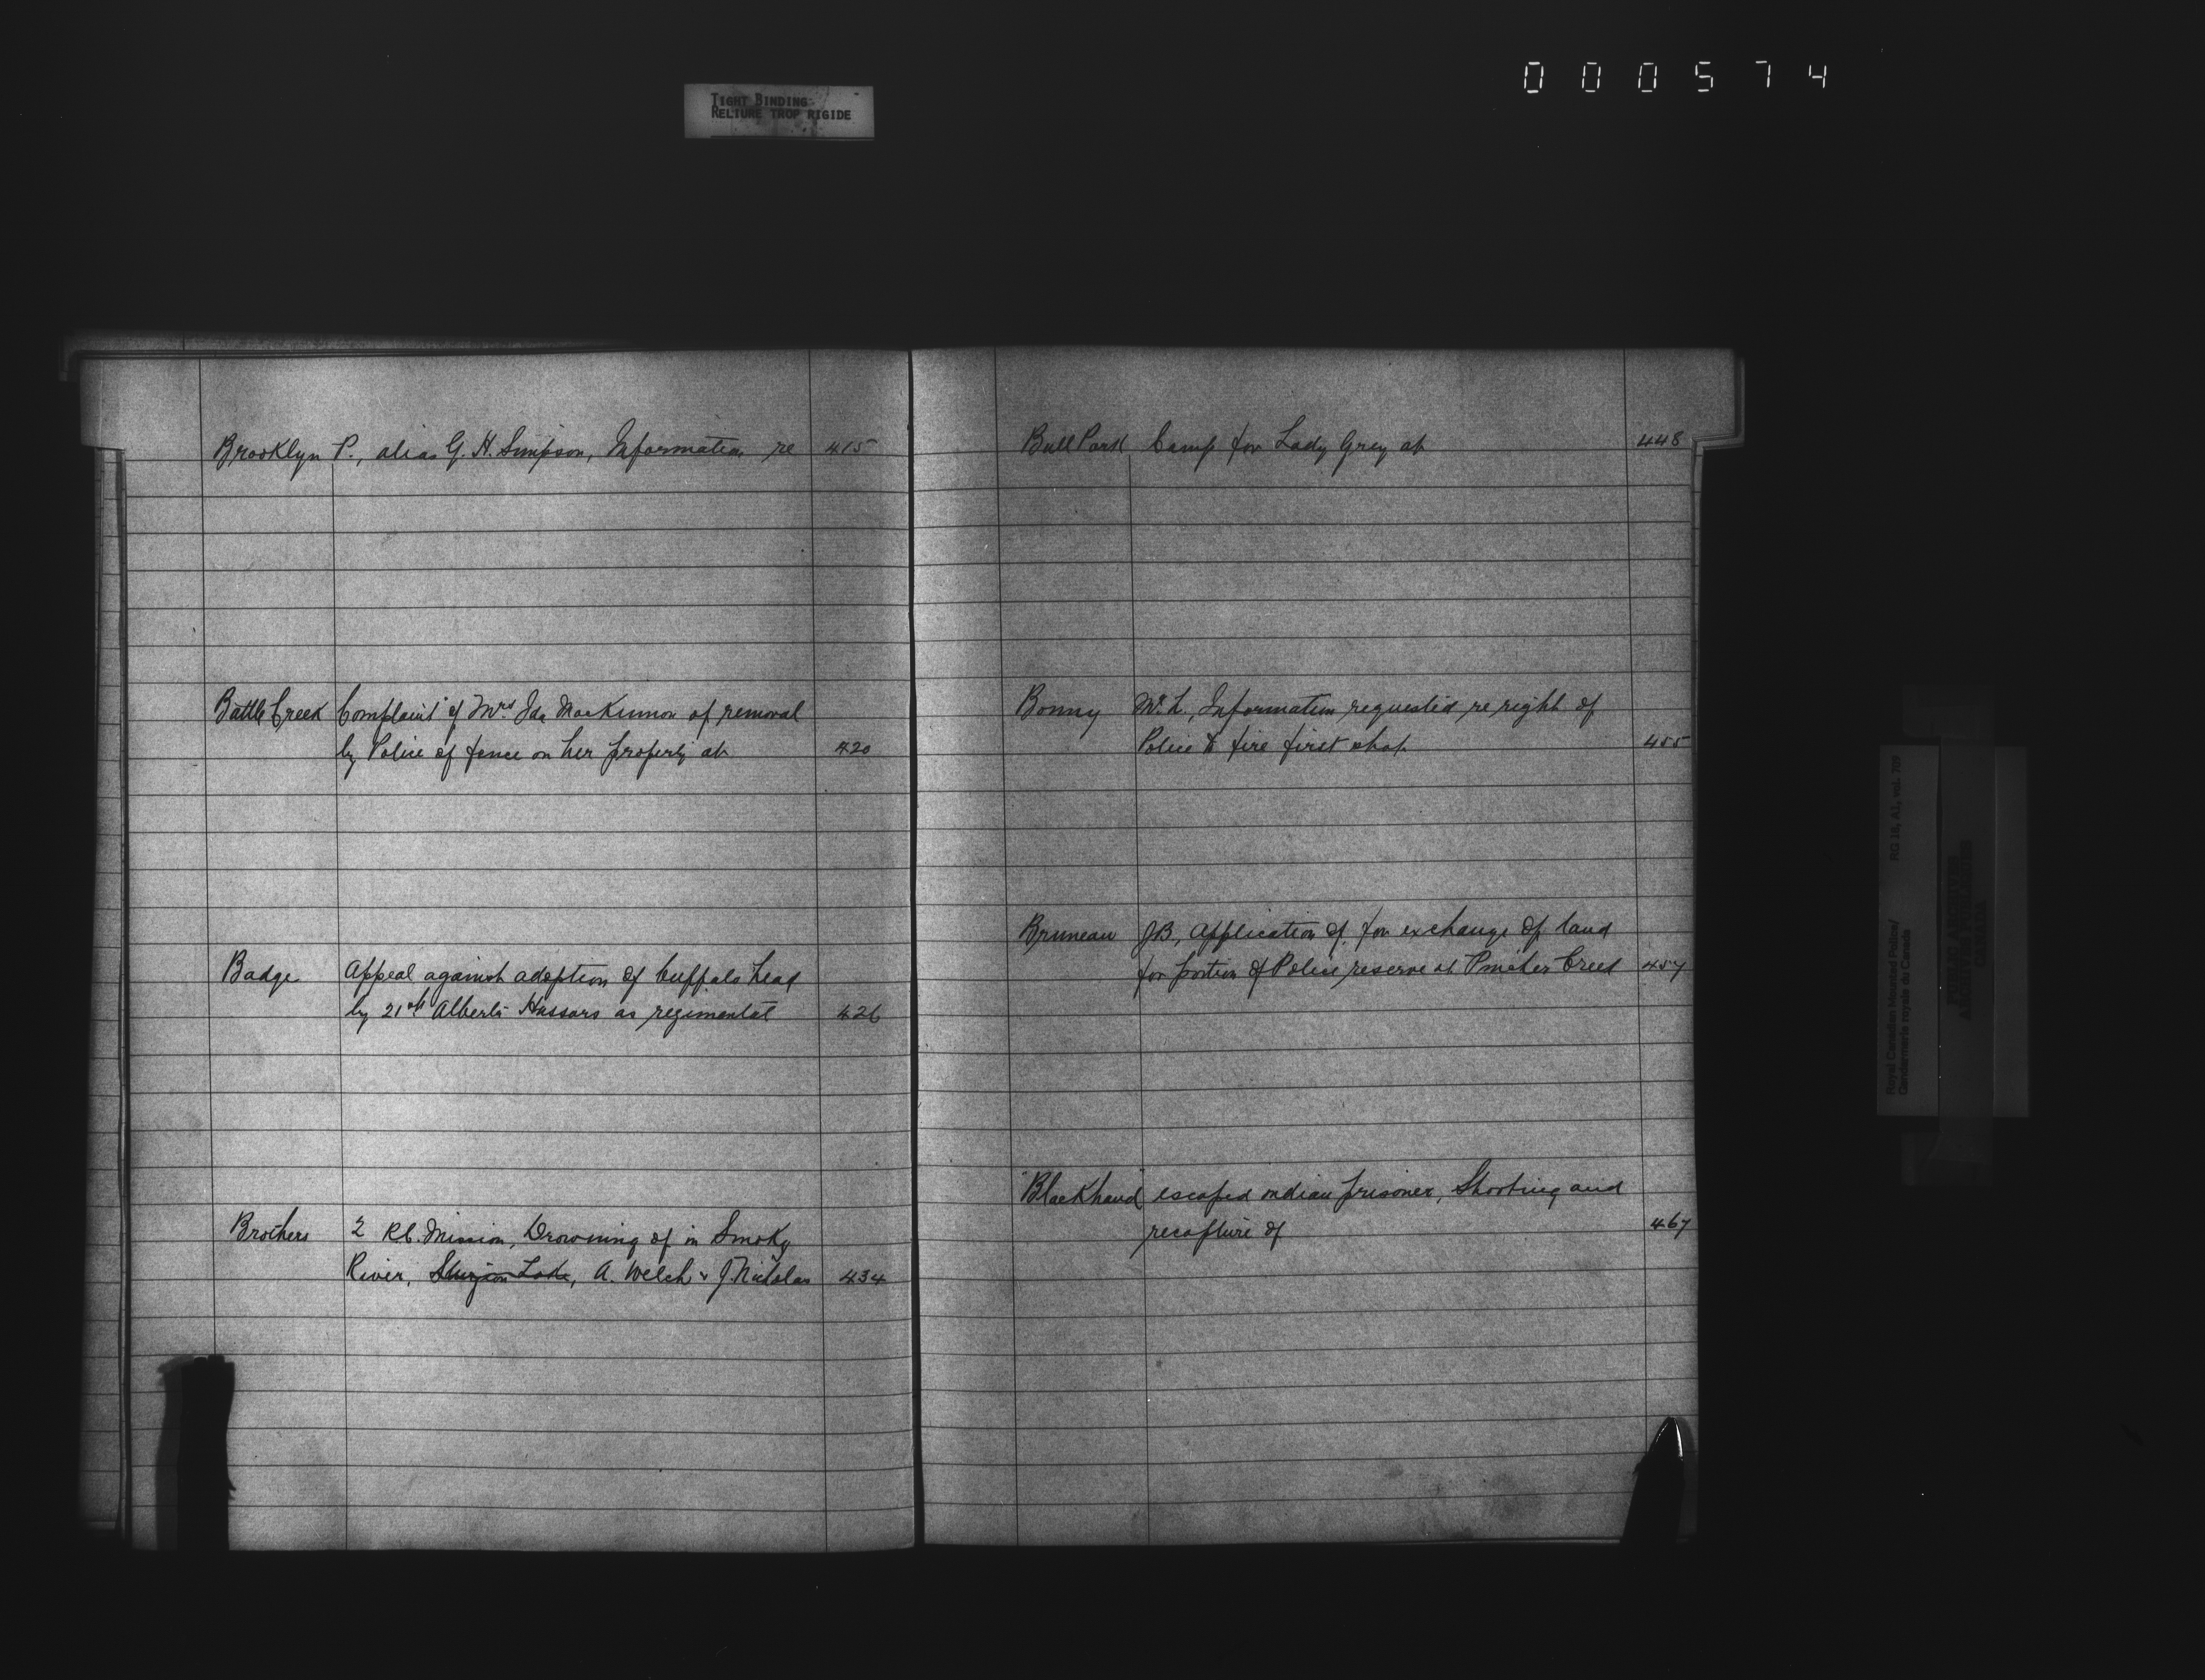 000574
TIGHT BINDING
RELIURE TROP RIGIDE
Brooklyn P., alias G. H. Simpson, Information re 415
Battle Creek Complaint of Mrs Ida MacKinnon of removal
by Police of fence on her property at 420
Badge Appeal against adoption of buffalo head
by 21st Alberta Hussars as regimental 426
Brothers 2 R.C. Mission, Drowning of in Smoky
River, Sturgeon Lake, A. Welch & J. Nicholas 434
Bull Park Camp for Lady Grey at 448
Bonny Mr. L., Information requested re right of
Police to fire first shot 455
Bruneau JB, Application of, for exchange of land
for portion of Police reserve at Pincher Creek 457
"Blackhand" escaped indian prisoner, Shooting and
recapture of 467
Royal Canadian Mounted Police/ RG 18, A1, vol. 709
Gendarmerie royale du Canada
PUBLIC ARCHIVES
ARCHIVES PUBLIQUES
CANADA